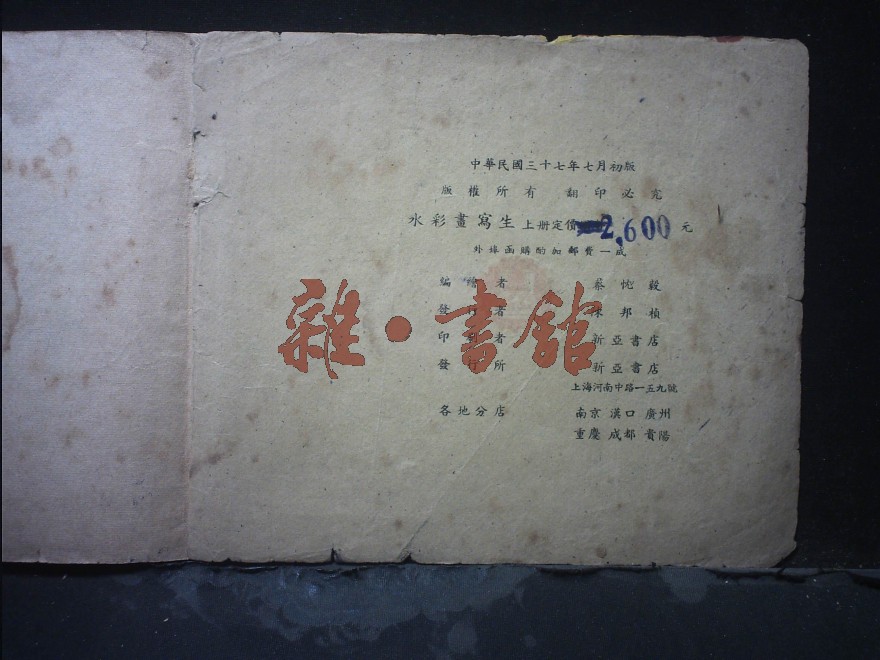 中華民國三十七年七月初版
版權所有 翻印必究
水彩畫寫生 上册定價 2,600 元
外埠函購酌加郵費一成
編繪者 蔡忱毅
發行者 陳邦楨
印刷者 新亞書店
發行所 新亞書店
上海河南中路一五九號
各地分店 南京 漢口 廣州
重慶 成都 貴陽
雜·書館